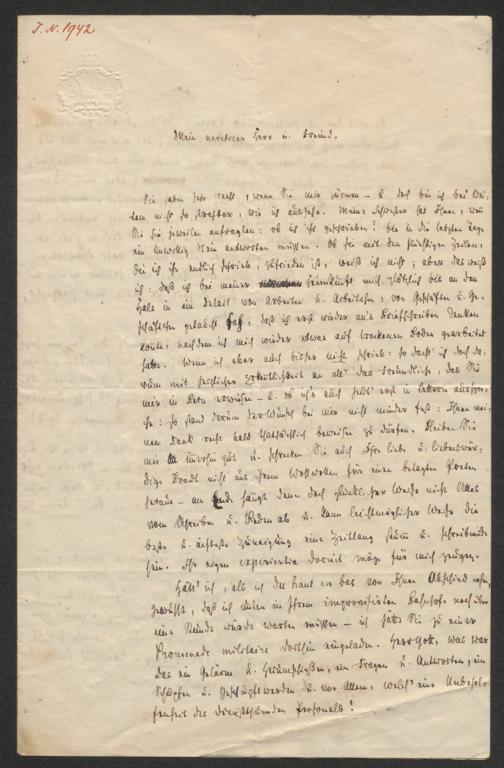 J. N. 1942
Mein verehrter Herr u. Freund.
Sie haben sehr recht, wenn Sie mir zürnen – u. doch bin ich bei Wei-
tem nicht so strafbar, wie ich aussehe. Meine Schwester hat Ihnen, wenn
Sie sie zuweilen anfragten: ob ich ihr geschrieben? bis in die letzten Tage
ein unwilliges Nein antworten müssen. Ob sie mit den flüchtigen Zeilen,
die ich ihr endlich schrieb, zufrieden ist, weiß ich nicht; aber das weiß
ich: daß ich bei meiner Heimkunft mich plötzlich bis an den
Hals in ein Detail von Arbeiten u. Arbeitchen, von Geschäften u. Ge-
schäftchen getaucht sah, daß ich erst wieder an's Briefschreiben denken
konnte, nachdem ich mich wieder etwas auf trockenen Boden gearbeitet
hatte. Wenn ich aber auch bisher nicht schrieb: so dacht' ich doch da-
rum mit herzlicher Erkenntlichkeit an all' das Freundliche, das Sie
mir in Bern erwiesen – u. ob ich's auch jetzt erst in Lettern ausspre-
che: so stand darum der Wunsch bei mir nicht minder fest: Ihnen mei-
nen Dank recht bald thatsächlich beweisen zu dürfen. Bleiben Sie
mir immerhin gut u. schenken Sie auch Ihre liebe u. liebenswür-
dige Braut nicht aus ihrem Wohlwollen für einen beladen Poeten
heraus – am Ende hängt denn doch glücklicher Weise nicht Alles
vom Schreiben u. Reden ab u. kann leichtmöglicher Weise die
beste u. ächteste Zuneigung eine Zeitlang stumm u. schreibmüde
sein. Ihre eigene experientia docuit möge für mich zeugen.
Hätt' ich, als ich du haut en bas von Ihnen Abschied nahm,
gewußt, daß ich unten in Ihrem improvisirten Bahnhofe noch über
eine Stunde würde warten müssen – ich hätte Sie zu einer
Promenade militaire dorthin eingeladen. Herr Gott, was war
das ein Gelärm u. ein Fragen u. Antworten, ein
u. vor Allem, welch' eine Unbehol-
fenheit des diensttuenden Personals!